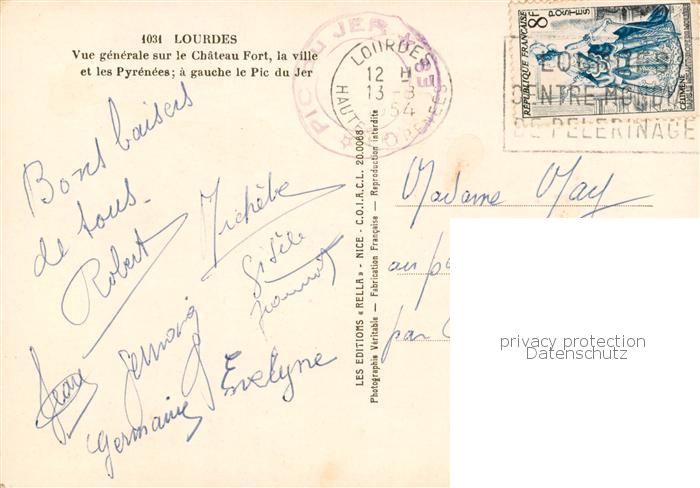 1031 LOURDES
Vue générale sur le Château Fort, la ville
et les Pyrénées; à gauche le Pic du Jer
Bons baisers
de tous.
Robert Michèle
Gisèle
Jeannot
Jean
Germaine Evelyne
PIC DU JER
LOURDES
12 H
13-8
1954
HAUTES PYRENEES
8F
POSTES
RÉPUBLIQUE FRANÇAISE
CÉLIMÈNE
LOURDES
CENTRE MONDIAL
DE PELERINAGE
LES EDITIONS « RELLA » - NICE - C.O.I.A.C.L. 20.0068
Photographie Véritable — Fabrication Française — Reproduction Interdite
Madame May
au
par
privacy protection
Datenschutz